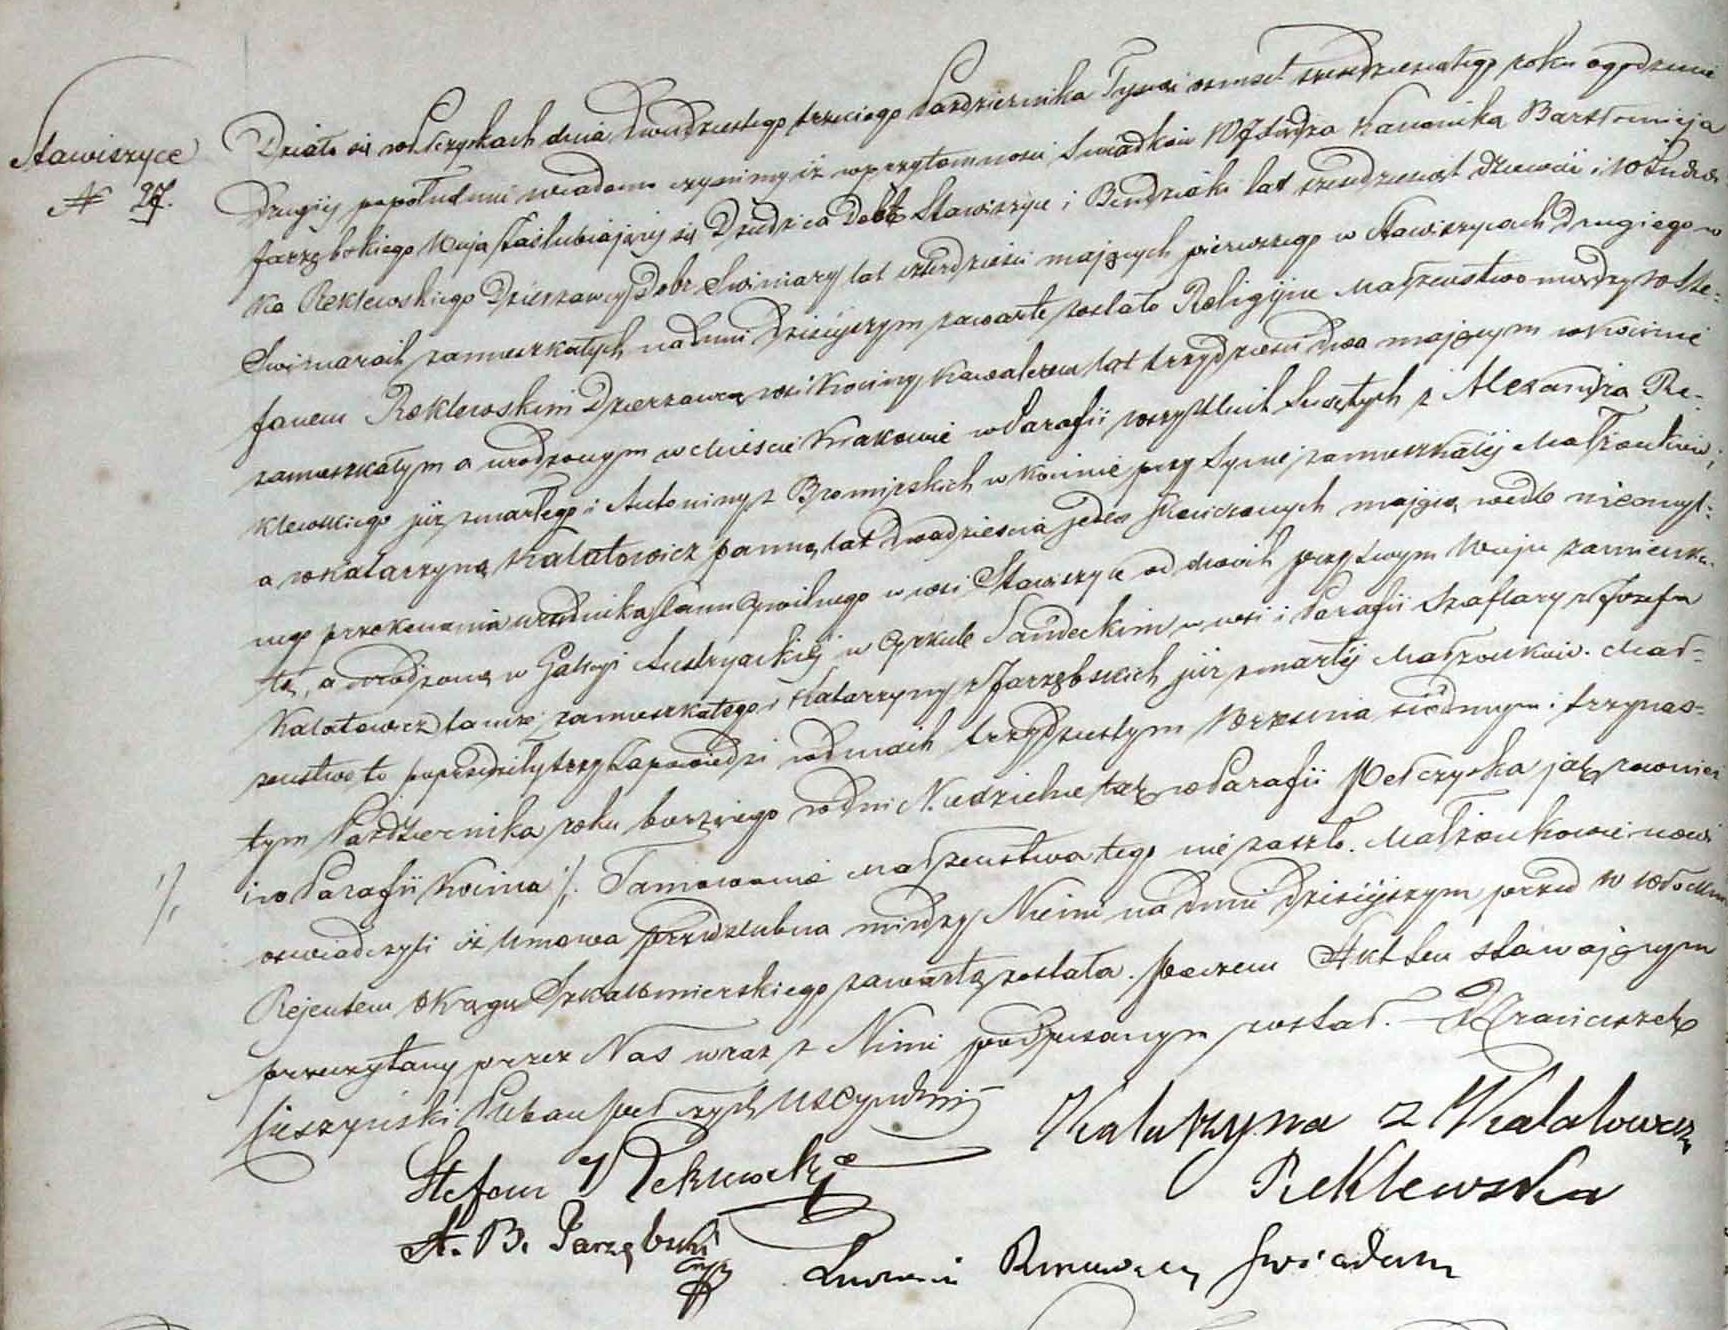 Stawiszyce
N 27.
Działo się w Pełczyskach dnia dwudziestego trzeciego Października Tysiąc osmset sześdziesiątego roku o godzinie
drugiej popołudniu wiadomo czynimy iż w przytomności Swiadków Kanonika Bartłomieja
Jarzębskiego Wuja Zaślubiającej się Dziedzica Dobr Stawiszyce i Lat sześdziesiąt dziewięć i W Ludwi
ka Reklewskiego Dzierzawcy Dobr Swiniary lat czterdzieści mających pierwszego w Stawiszycach drugiego w
Swiniarach zamieszkałych na dniu dzisiejszym zawarte zostało Religijne Małżeństwo między W Ste=
fanem Reklewskim Dzierzawcą wsi Kociny Kawalerem lat trzydzieści dwa mającym w Kocinie
zamieszkałym a urodzonym w Mieście Krakowie w Parafii wszystkich Swiętych z Alexandra Re=
klewskiego już zmarłego i Antoniny z w Kocinie przy Synie zamieszkałej Małżonków;
a W Katarzyną Kalatowicz panną lat dwadzieścia jeden skończonych mającą wedle nieomyl=
nego przekonania urzędnika Stanu Cywilnego w wsi Stawiszyce od dwóch przy swym Wuju zamieszka
łą, a urodzoną w Galicyi Austryackiej w Cyrkule Sandeckim w wsi i Parafii Szaflary z Józefa
Kalatowicz tamże zamieszkałego i Katarzyny z Jarzębskich już zmarłej Małżonków. Mał=
żeństwo to poprzedziły trzy Zapowiedzi w dniach trzydziestym Września siódmym i trzynas=
tym Października roku bieżącego w dni Niedzielne tak w Parafii Pełczyska jak rownież
i w Parafii Kocina /. Tamowanie małżeństwa tego nie zaszło. Małżonkowie nowi
oświadczyli iż Umowa przedślubna między Niemi na dniu dzisiejszym przed W
Rejentem Okręgu Szkalbmierskiego zawartą została. Poczem Akt ten stawającym
przeczytany przez Nas wraz z Nimi podpisanym został. X Franciszek
Cieszyński Pleban
Stefan Reklewski
Katarzyna z Kalatowicz
Reklewska
X. B. Jarzębski
Ludwik Reklewski świadek